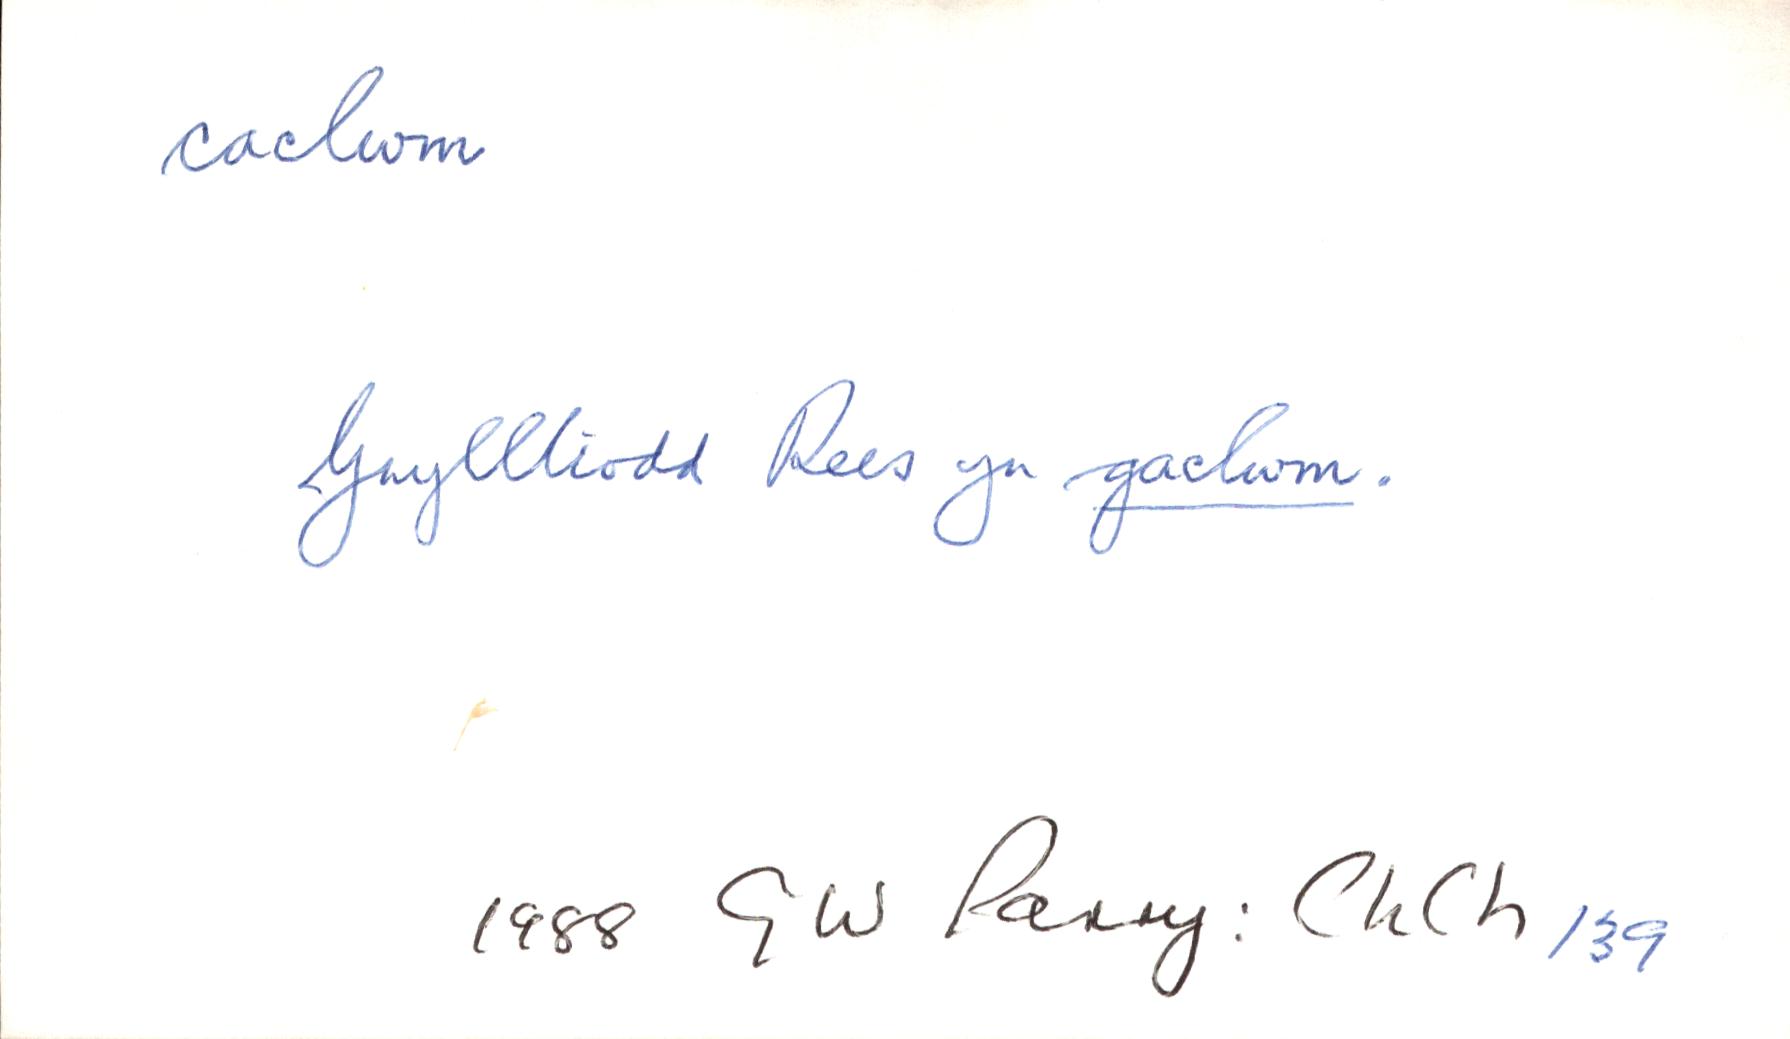 caclwm
Gwylltiodd Rees yn gaclwm.
1988 G W Parry: ChCh 139